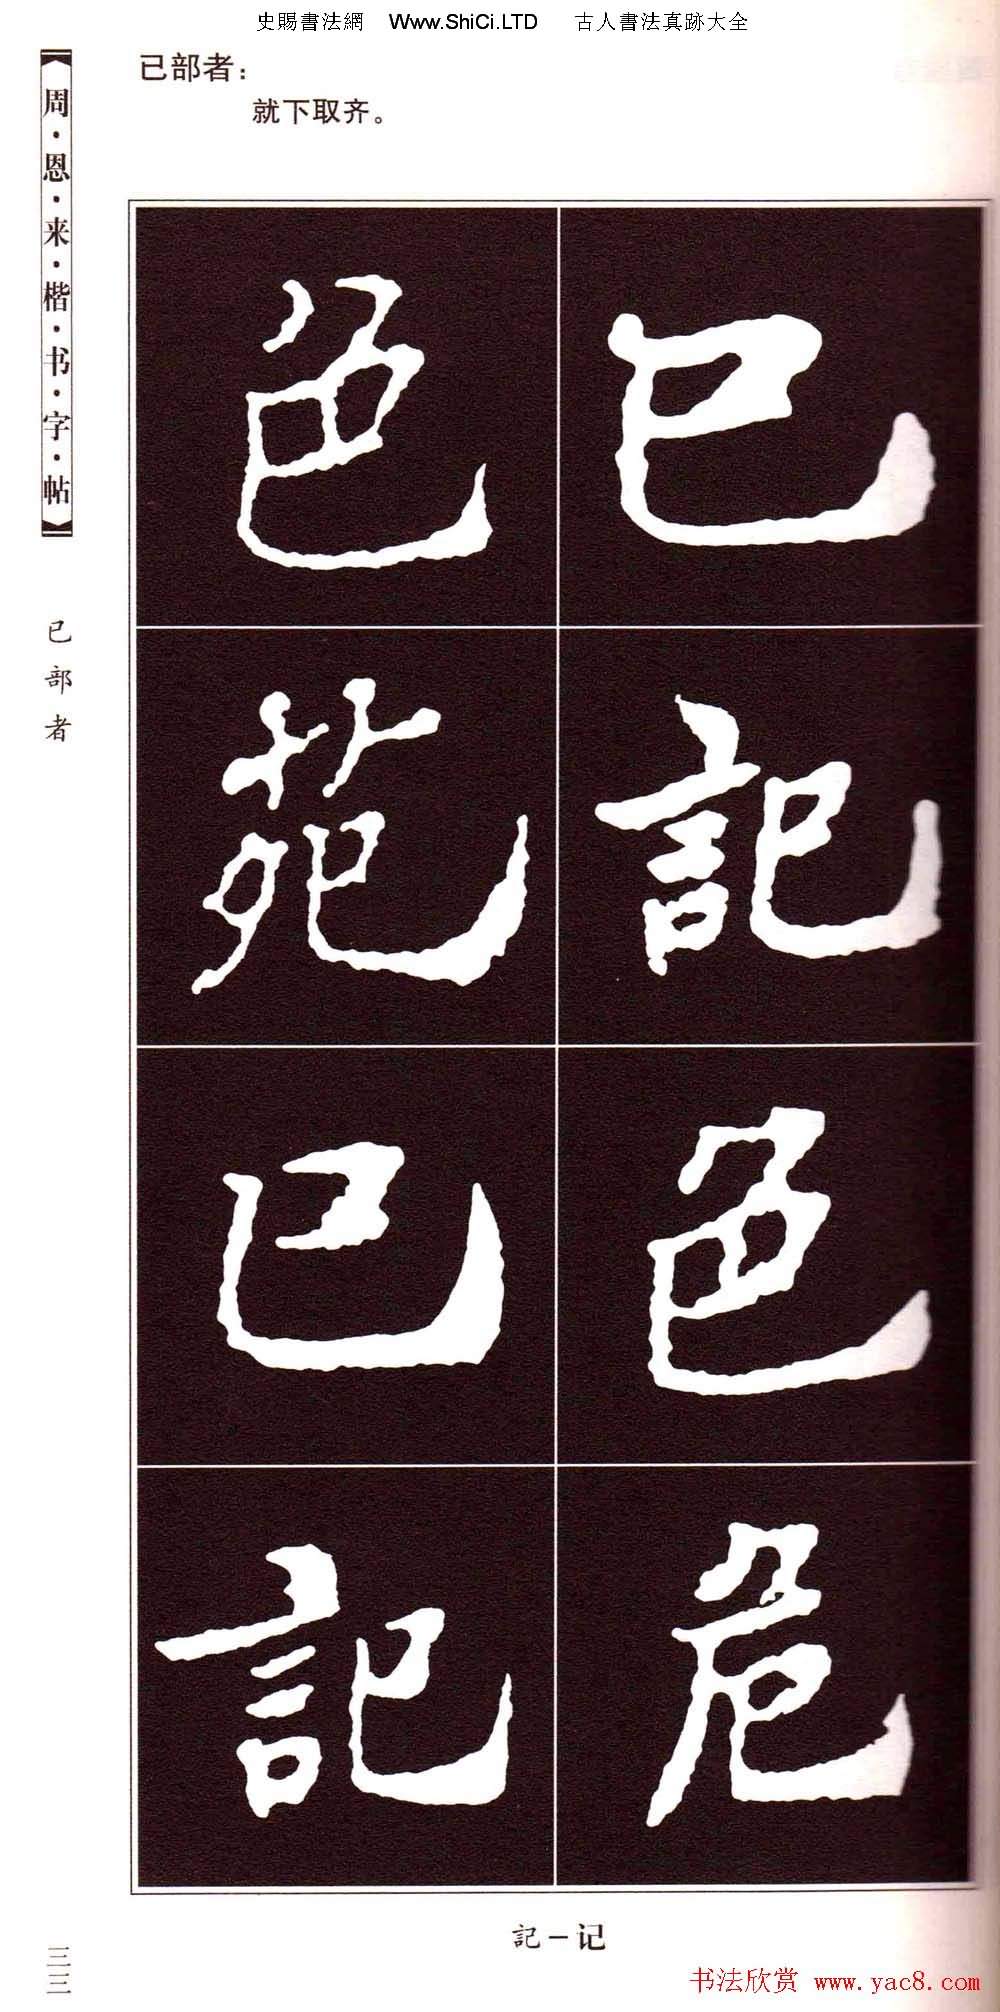 史賜書法網 Www.ShiCi.LTD 古人書法真跡大全
已部者：
就下取齐。
周·恩·来·楷·书·字·帖
已部者
已 色
記 苑
色 已
危 記
記－记
三三
书法欣赏 www.yac8.com